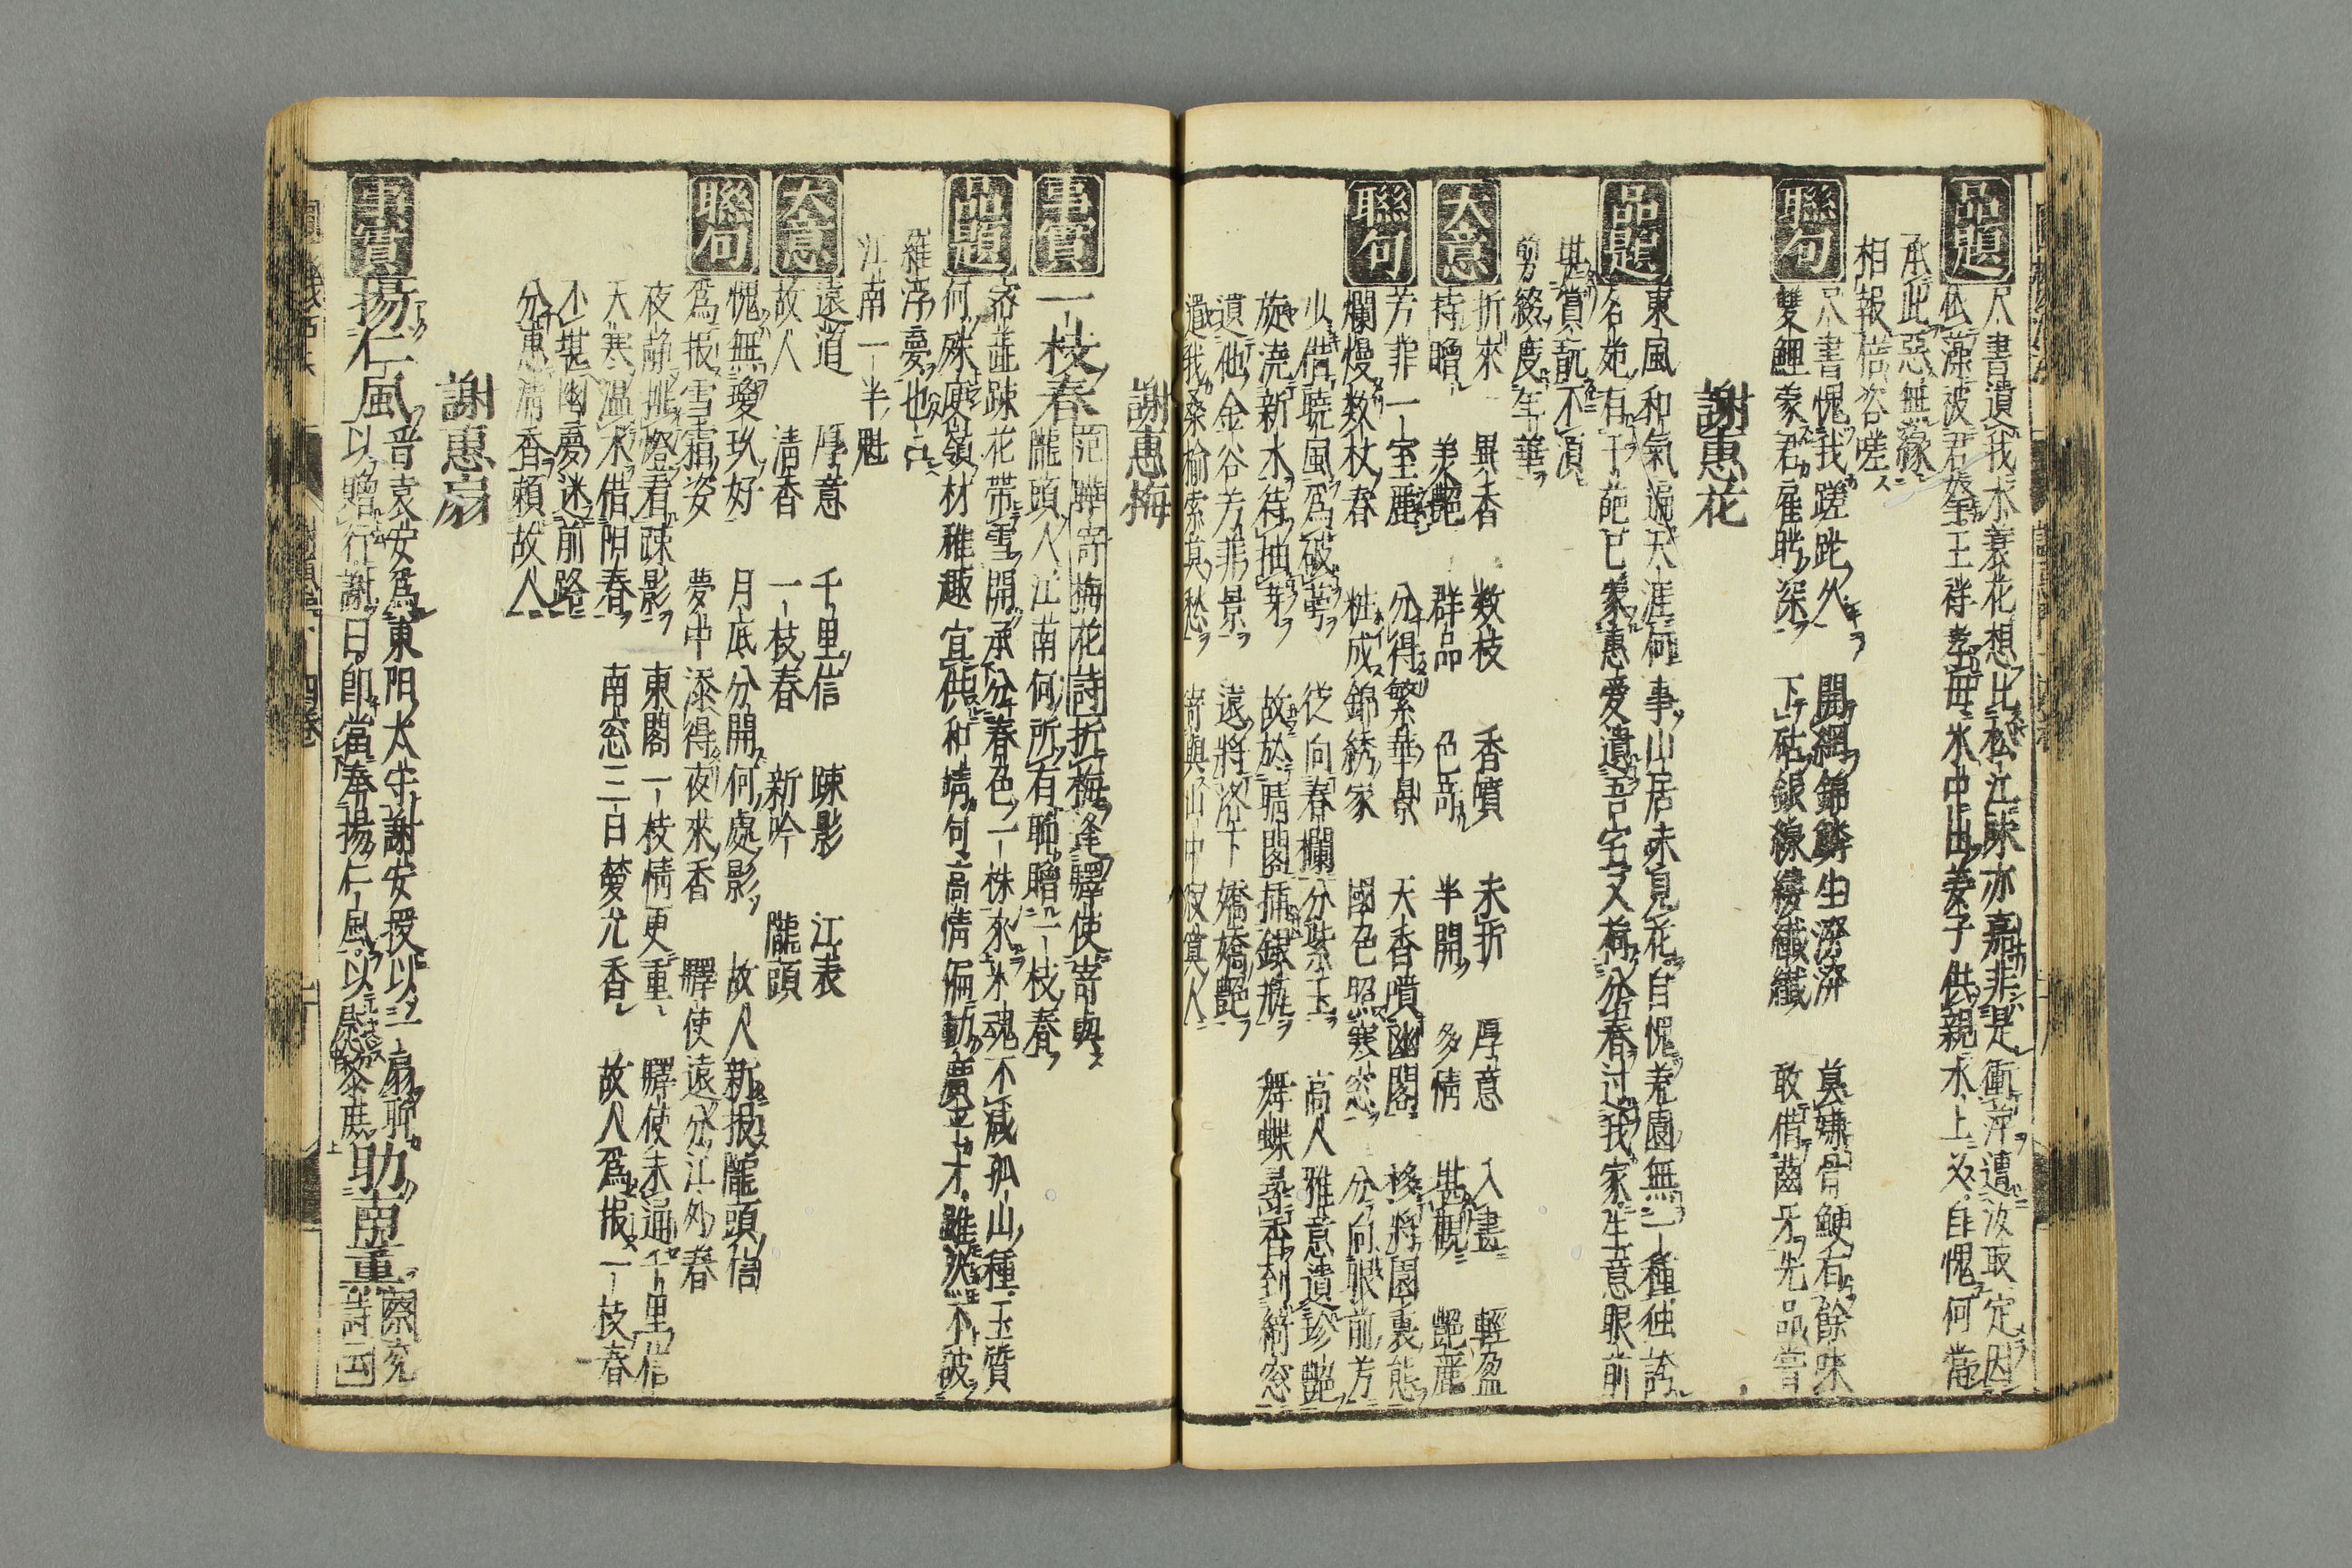 品題
尺書遺我水蓑花想比松江疎亦嘉非是衝萍遭汝取定因
依藻被君金王祥孝母氷中出姜子供親水上必自愧何當
承此惡無緣
相報倍咨嗟
聯句
尺書愧我蹉跎久 開網錦鱗生潑潑 莫嫌骨鯁有餘味
雙鯉蒙君雇聘深 下砧銀線縷纖纖 敢借齒牙先品嘗
謝惠花
品題
東風和氣遍天涯何事山居未見花自愧荒園無一種独誇
名苑有千葩已蒙惠愛遺吾宅又荷分春过我家生意眼前
堪賞翫不湏
剪綴度年華
大意
折來 異香 数枝 香噴 未折 厚意 入畫 輕盈
持贈 羙艶 群品 色竒 半開 多情 堪觀 艶麗
聯句
芳菲一室麗 分得繁華景 天香噴幽閣 移將園裏態
爛熳数枝春 粧成錦綉家 國色照寒窓 分向眼前芳
少借曉風爲破萼 從向春欄分紫玉 高人雅意遺珍艶
旋澆新水待抽芽 故於晴閣插銀瓶 舞蝶尋香到綺窓
遺他金谷芳菲景 遠將洛下嬌嬌艶
遺我桑榆索莫愁 寄與山中寂寞人
謝惠梅
事實
一枝春 范曄寄梅花詩折梅逢驛使寄與
隴頭人江南何所有聊贈一枝春
品題
窓並踈花帯雪開承分春色一株來氷魂不減孤山種玉質
何殊庾嶺材稚趣宜供和靖句高情偏動廣平才雖然不破
羅浮夢也占
江南一半魁
大意
遠道 厚意 千里信 踈影 江表
故人 清香 一枝春 新吟 隴頭
聯句
愧無瓊玖好 月底分開何處影 故人新报隴頭信
爲报雪霜姿 夢中添得夜來香 驛使遠分江外春
夜静挑燈看踈影 東閣一枝情更重 驛使未逼千里信
天寒温水借阳春 南窓三日夢尤香 故人爲报一枝春
不堪幽夢迷前路
分惠清香頼故人
謝惠扇
事實
揚仁風 晋袁安爲東阳太守謝安授以一扇聊
以贈行謝曰卽當奉揚仁風以慰黎庶
助南薰 察亮
詩云